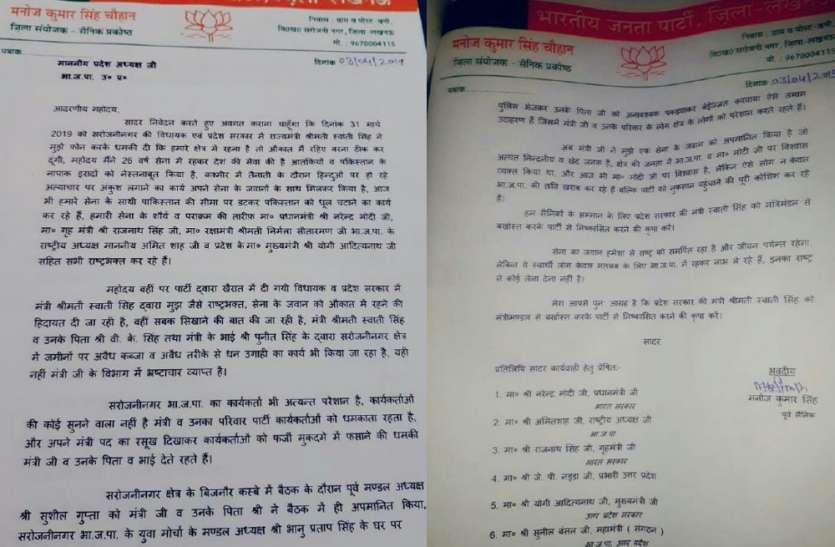 मनोज कुमार सिंह चौहान
जिला संयोजक - सैनिक प्रकोष्ठ
निवास : ग्राम व पोस्ट-बनी
सरोजनी नगर, लखनऊ
मो. : 9670004115
पत्रांक
दिनांक 03/04/2019
माननीय प्रदेश अध्यक्ष जी
भा.ज.पा. उ० प्र०
आदरणीय महोदय,
सादर निवेदन करते हुए अवगत कराना चाहूँगा कि दिनांक 31 मार्च
2019 को सरोजनीनगर की विधायक एवं प्रदेश सरकार में राज्यमंत्री श्रीमती स्वाती सिंह ने
मुझे फोन करके धमकी दी कि हमारे क्षेत्र मे रहना है तो औकात में रहिए वरना ठीक कर
दूंगी, महोदय मैंने 26 वर्ष सेना में रहकर देश की सेवा की है आतंकियों व पकिस्तान के
नापाक इरादों को नेस्तनाबूत किया है, कश्मीर में तैनाती के दौरान हिन्दुओं पर हो रहे
अत्याचार पर अंकुश लगाने का कार्य अपने सेना के जवानों के साथ मिलकर किया है, आज
भी हमारे सेना के साथी पाकिस्तान की सीमा पर डटकर पकिस्तान को धूल चटाने का कार्य
कर रहे हैं, हमारी सेना के शौर्य व पराक्रम की तारीफ मा० प्रधानमंत्री श्री नरेन्द्र मोदी जी,
मा० गृह मंत्री श्री राजनाथ सिंह जी, मा० रक्षामंत्री श्रीमती निर्मला सीतारमण जी भा.ज.पा. के
राष्ट्रीय अध्यक्ष माननीय अमित शाह जी व प्रदेश के मा० मुख्यमंत्री श्री योगी आदित्यनाथ जी
सहित सभी राष्ट्रभक्त कर रहे हैं।
महोदय वहीं पर पार्टी द्वारा खैरात में दी गयी विधायक व प्रदेश सरकार में
मंत्री श्रीमती स्वाती सिंह द्वारा मुझ जैसे राष्ट्रभक्त, सेना के जवान को औकात मे रहने की
हिदायत दी जा रही है, वहीं सबक सिखाने की बात की जा रही है, मंत्री श्रीमती स्वाती सिंह
व उनके पिता श्री वी. के. सिंह तथा मंत्री के भाई श्री पुनीत सिंह के द्वारा सरोजनीनगर क्षेत्र
में जमीनों पर अवैध कब्जा व अवैध तरीके से धन उगाही का कार्य भी किया जा रहा है, यही
नहीं मंत्री जी के विभाग में भ्रष्टाचार व्याप्त है।
सरोजनीनगर भा.ज.पा. का कार्यकर्ता भी अत्यन्त परेशान है, कार्यकर्ताओं
की कोई सुनने वाला नहीं है मंत्री व उनका परिवार पार्टी कार्यकर्ताओं को धमकाता रहता है,
और अपने मंत्री पद का रसूख दिखाकर कार्यकर्ताओं को फर्जी मुकदमे में फसाने की धमकी
मंत्री जी व उनके पिता व भाई देते रहते हैं।
सरोजनीनगर क्षेत्र के बिजनौर कस्बे में बैठक के दौरान पूर्व मण्डल अध्यक्ष
श्री सुशील गुप्ता को मंत्री जी व उनके पिता श्री ने बैठक मे ही अपमानित किया,
सरोजनीनगर भा.ज.पा. के युवा मोर्चा के मण्डल अध्यक्ष श्री भानु प्रताप सिंह के घर पर
भारतीय जनता पार्टी, जिला-लखनऊ
मनोज कुमार सिंह चौहान
जिला संयोजक - सैनिक प्रकोष्ठ
निवास : ग्राम व पोस्ट-बनी
सरोजनी नगर, जिला-लखनऊ
मो. : 9670004115
पत्रांक
दिनांक 03/04/2019
पुलिस भेजकर उनके पिता जी को अनावश्यक पकड़वाकर बेईज्जत करवाया ऐसे तमाम
उदाहरण हैं जिसमे मंत्री जी व उनके परिवार के लोग क्षेत्र के लोगों को परेशान करते रहते हैं।
अब मंत्री जी ने मुझे एक सेना के जवान को अपमानित किया है जो
अत्यंत निन्दनीय व खेद जनक है, क्षेत्र की जनता मे भा.ज.पा. व मा० मोदी जी पर विश्वास
व्यक्त किया था, और आज भी मा० मोदी जी पर विश्वास है, लेकिन ऐसे लोग न केवल
भा.ज.पा. की छवि खराब कर रहे हैं बल्कि पार्टी को नुकसान पहुंचाने की पूरी कोशिश कर रहे
है।
हम सैनिकों के सम्मान के लिए प्रदेश सरकार की मंत्री स्वाती सिंह को मंत्रिमंडल से
बर्खास्त करके पार्टी से निष्कासित करने की कृपा करें।
सेना का जवान हमेशा से राष्ट्र को समर्पित रहा है और जीवन पर्यन्त रहेगा,
लेकिन ये स्वार्थी लोग केवल मतलब के लिए भा.ज.पा. में रहकर लाभ ले रहे हैं, इनका राष्ट्र
से कोई लेना देना नहीं है।
मेरा आपसे पुनः आग्रह है कि प्रदेश सरकार की मंत्री श्रीमती स्वाती सिंह को
मंत्रीमण्डल से बर्खास्त करके पार्टी से निष्कासित करने की कृपा करें।
सादर
प्रतिलिपि सादर कार्यवाही हेतु प्रेषित:-
भवदीय
मनोज कुमार सिंह
पूर्व सैनिक
1. मा० श्री नरेन्द्र मोदी जी, प्रधानमंत्री जी
भारत सरकार
2. मा० श्री अमितशाह जी, राष्ट्रीय अध्यक्ष जी
भा.ज.पा.
3. मा० श्री राजनाथ सिंह जी, गृहमंत्री जी
भारत सरकार
4. मा० श्री जे. पी. नड्डा जी, प्रभारी उत्तर प्रदेश
5. मा० श्री योगी आदित्यनाथ जी, मुख्यमंत्री जी
उत्तर प्रदेश सरकार
6. मा० श्री सुनील बंसल जी, महामंत्री ( संगठन )
भा.ज.पा. उत्तर प्रदेश